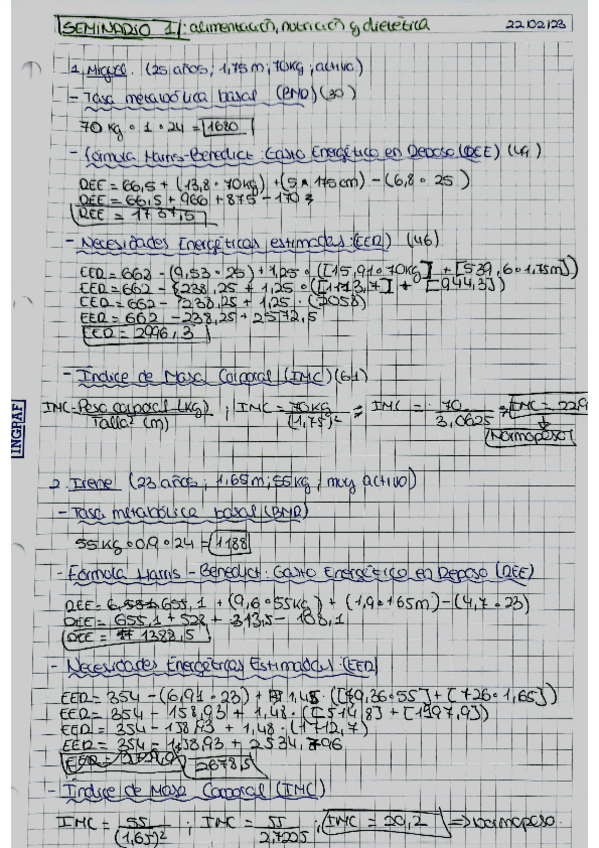 SEMINARIO 1: alimentación, nutrición y dietética 22/02/23
1. Miguel. (25 años; 1,75m; 70kg; activo)
- Tasa metabólica basal (BMR) (30)
70 kg · 1 · 24 = 1680
- fórmula Harris-Benedict: Gasto Energético en Reposo (REE) (49)
REE = 66,5 + (13,8 · 70kg) + (5 · 175cm) - (6,8 · 25)
REE = 66,5 + 966 + 875 - 170
REE = 1737,5
- Necesidades Energéticas estimadas: (EER) (46)
EER = 662 - (9,53 · 25) + 1,25 · ([15,91 · 70kg] + [539,6 · 1,75m])
EER = 662 - 238,25 + 1,25 · ([1113,7] + [944,3])
EER = 662 - 238,25 + 1,25 · (2058)
EER = 662 - 238,25 + 2572,5
EER = 2996,3
- Índice de Masa Corporal (IMC) (61)
IMC = Peso corporal (kg) / Talla² (m) ; IMC = 70kg / (1,75)² ; IMC = 70 / 3,0625 ; IMC = 22,9
Normopeso
INGRAF
2. Irene (23 años; 1,65m; 55kg; muy activo)
- Tasa metabólica basal (BMR)
55kg · 0,9 · 24 = 1188
- Fórmula Harris-Benedict: Gasto Energético en Reposo (REE)
REE = 655,1 + (9,6 · 55kg) + (1,9 · 165m) - (4,7 · 23)
REE = 655,1 + 528 + 313,5 - 108,1
REE = 1388,5
- Necesidades Energéticas Estimadas (EER)
EER = 354 - (6,91 · 23) + 1,48 · ([9,36 · 55] + [726 · 1,65])
EER = 354 - 158,93 + 1,48 · ([514,8] + [1197,9])
EER = 354 - 158,93 + 1,48 · (1712,7)
EER = 354 - 158,93 + 2534,796
2678,5
- Índice de Masa Corporal (IMC)
IMC = 55 / (1,65)² ; IMC = 55 / 2,7225 ; IMC = 20,2 => normopeso.